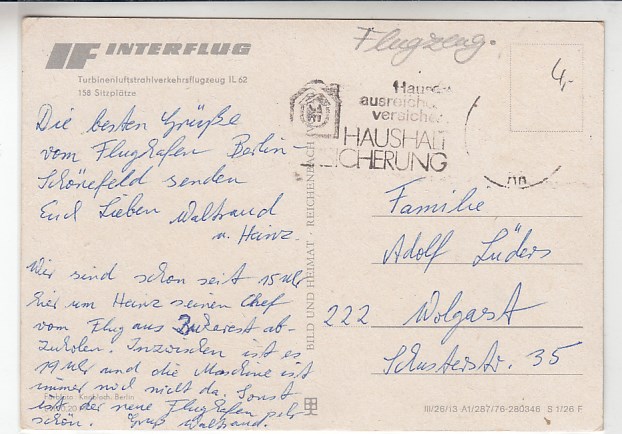 INTERFLUG
Turbinenluftstrahlverkehrsflugzeug IL 62
158 Sitzplätze
Die besten Grüße
vom Flughafen Berlin-
Schönefeld senden
Euch Lieben Waltraud
u. Heinz.
Wir sind schon seit 15 Uhr
hier um Heinz seinen Chef
vom Flug aus Bukarest ab-
zuholen. Inzwischen ist es
19 Uhr und die Maschine ist
immer noch nicht da. Sonst
ist der neue Flughafen sehr
schön. Gruß Waltraud.
Berlin
BILD UND HEIMAT · REICHENBACH
Flugzeug.
4,-
ausreiche
versicher
HAUSHALT
ICHERUNG
Familie
Adolf Lüders
222 Wolgast
Schusterstr. 35
III/26/13 A1/287/76-280346 S 1/26 F